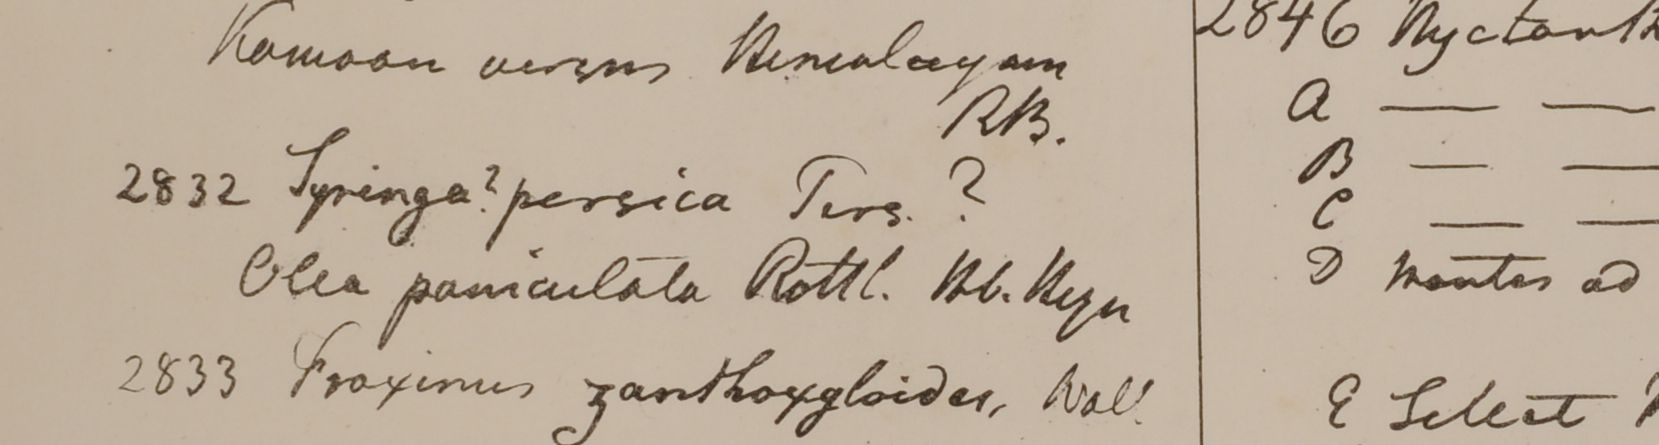 Kamaon versus Himalayam
RB.
2832 Syringa? persica Pers. ?
Olea paniculata Rottl. Hb. Heyn
2833 Fraxinus zanthoxyloides, Wall
2846 Nyctanth
A — —
B — —
C — —
D Montes ad
E Silhet